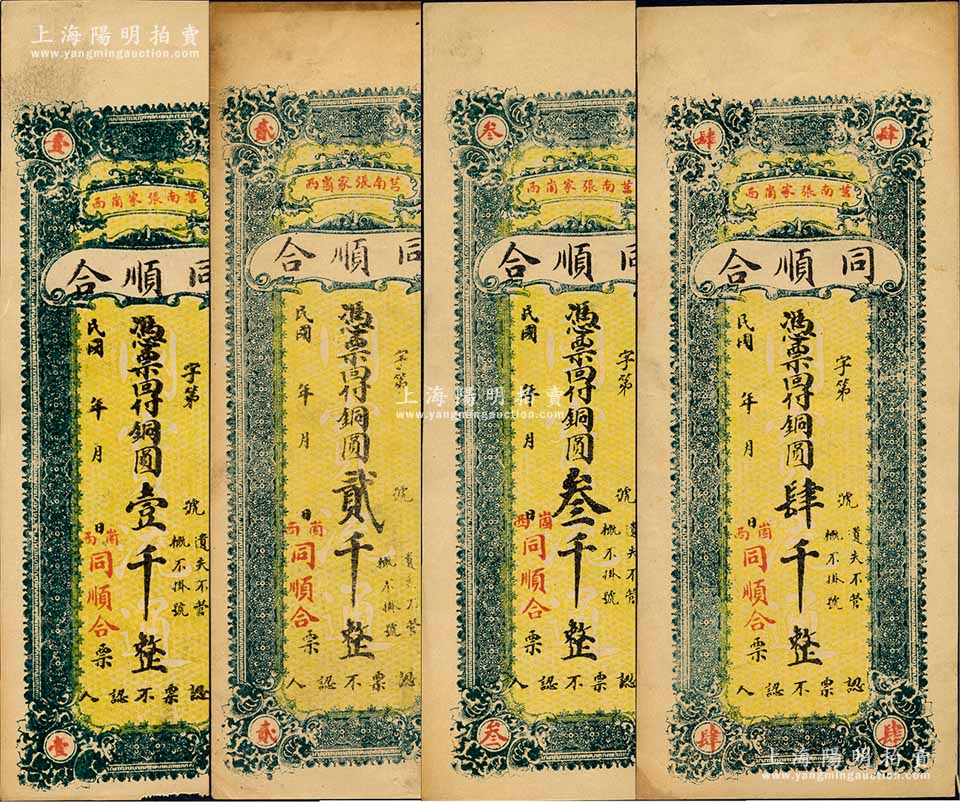 上海陽明拍賣
www.yangmingauction.com
壹
莒南張家崗西
同順合
字第 號
憑票付銅圓壹千整
民國 年 月 日
遺失不管
概不掛號
崗西
同順合
票
認票不認人
壹
貳
莒南張家崗西
同順合
字第 號
憑票付銅圓貳千整
民國 年 月 日
遺失不管
概不掛號
崗西
同順合
票
認票不認人
貳
叁
莒南張家崗西
同順合
字第 號
憑票付銅圓叁千整
民國 年 月 日
遺失不管
概不掛號
崗西
同順合
票
認票不認人
叁
肆 肆
莒南張家崗西
同順合
字第 號
憑票付銅圓肆千整
民國 年 月 日
遺失不管
概不掛號
崗西
同順合
票
認票不認人
肆 肆
上海陽明拍賣
www.yangmingauction.com
上海陽明拍賣
www.yangmingauction.com